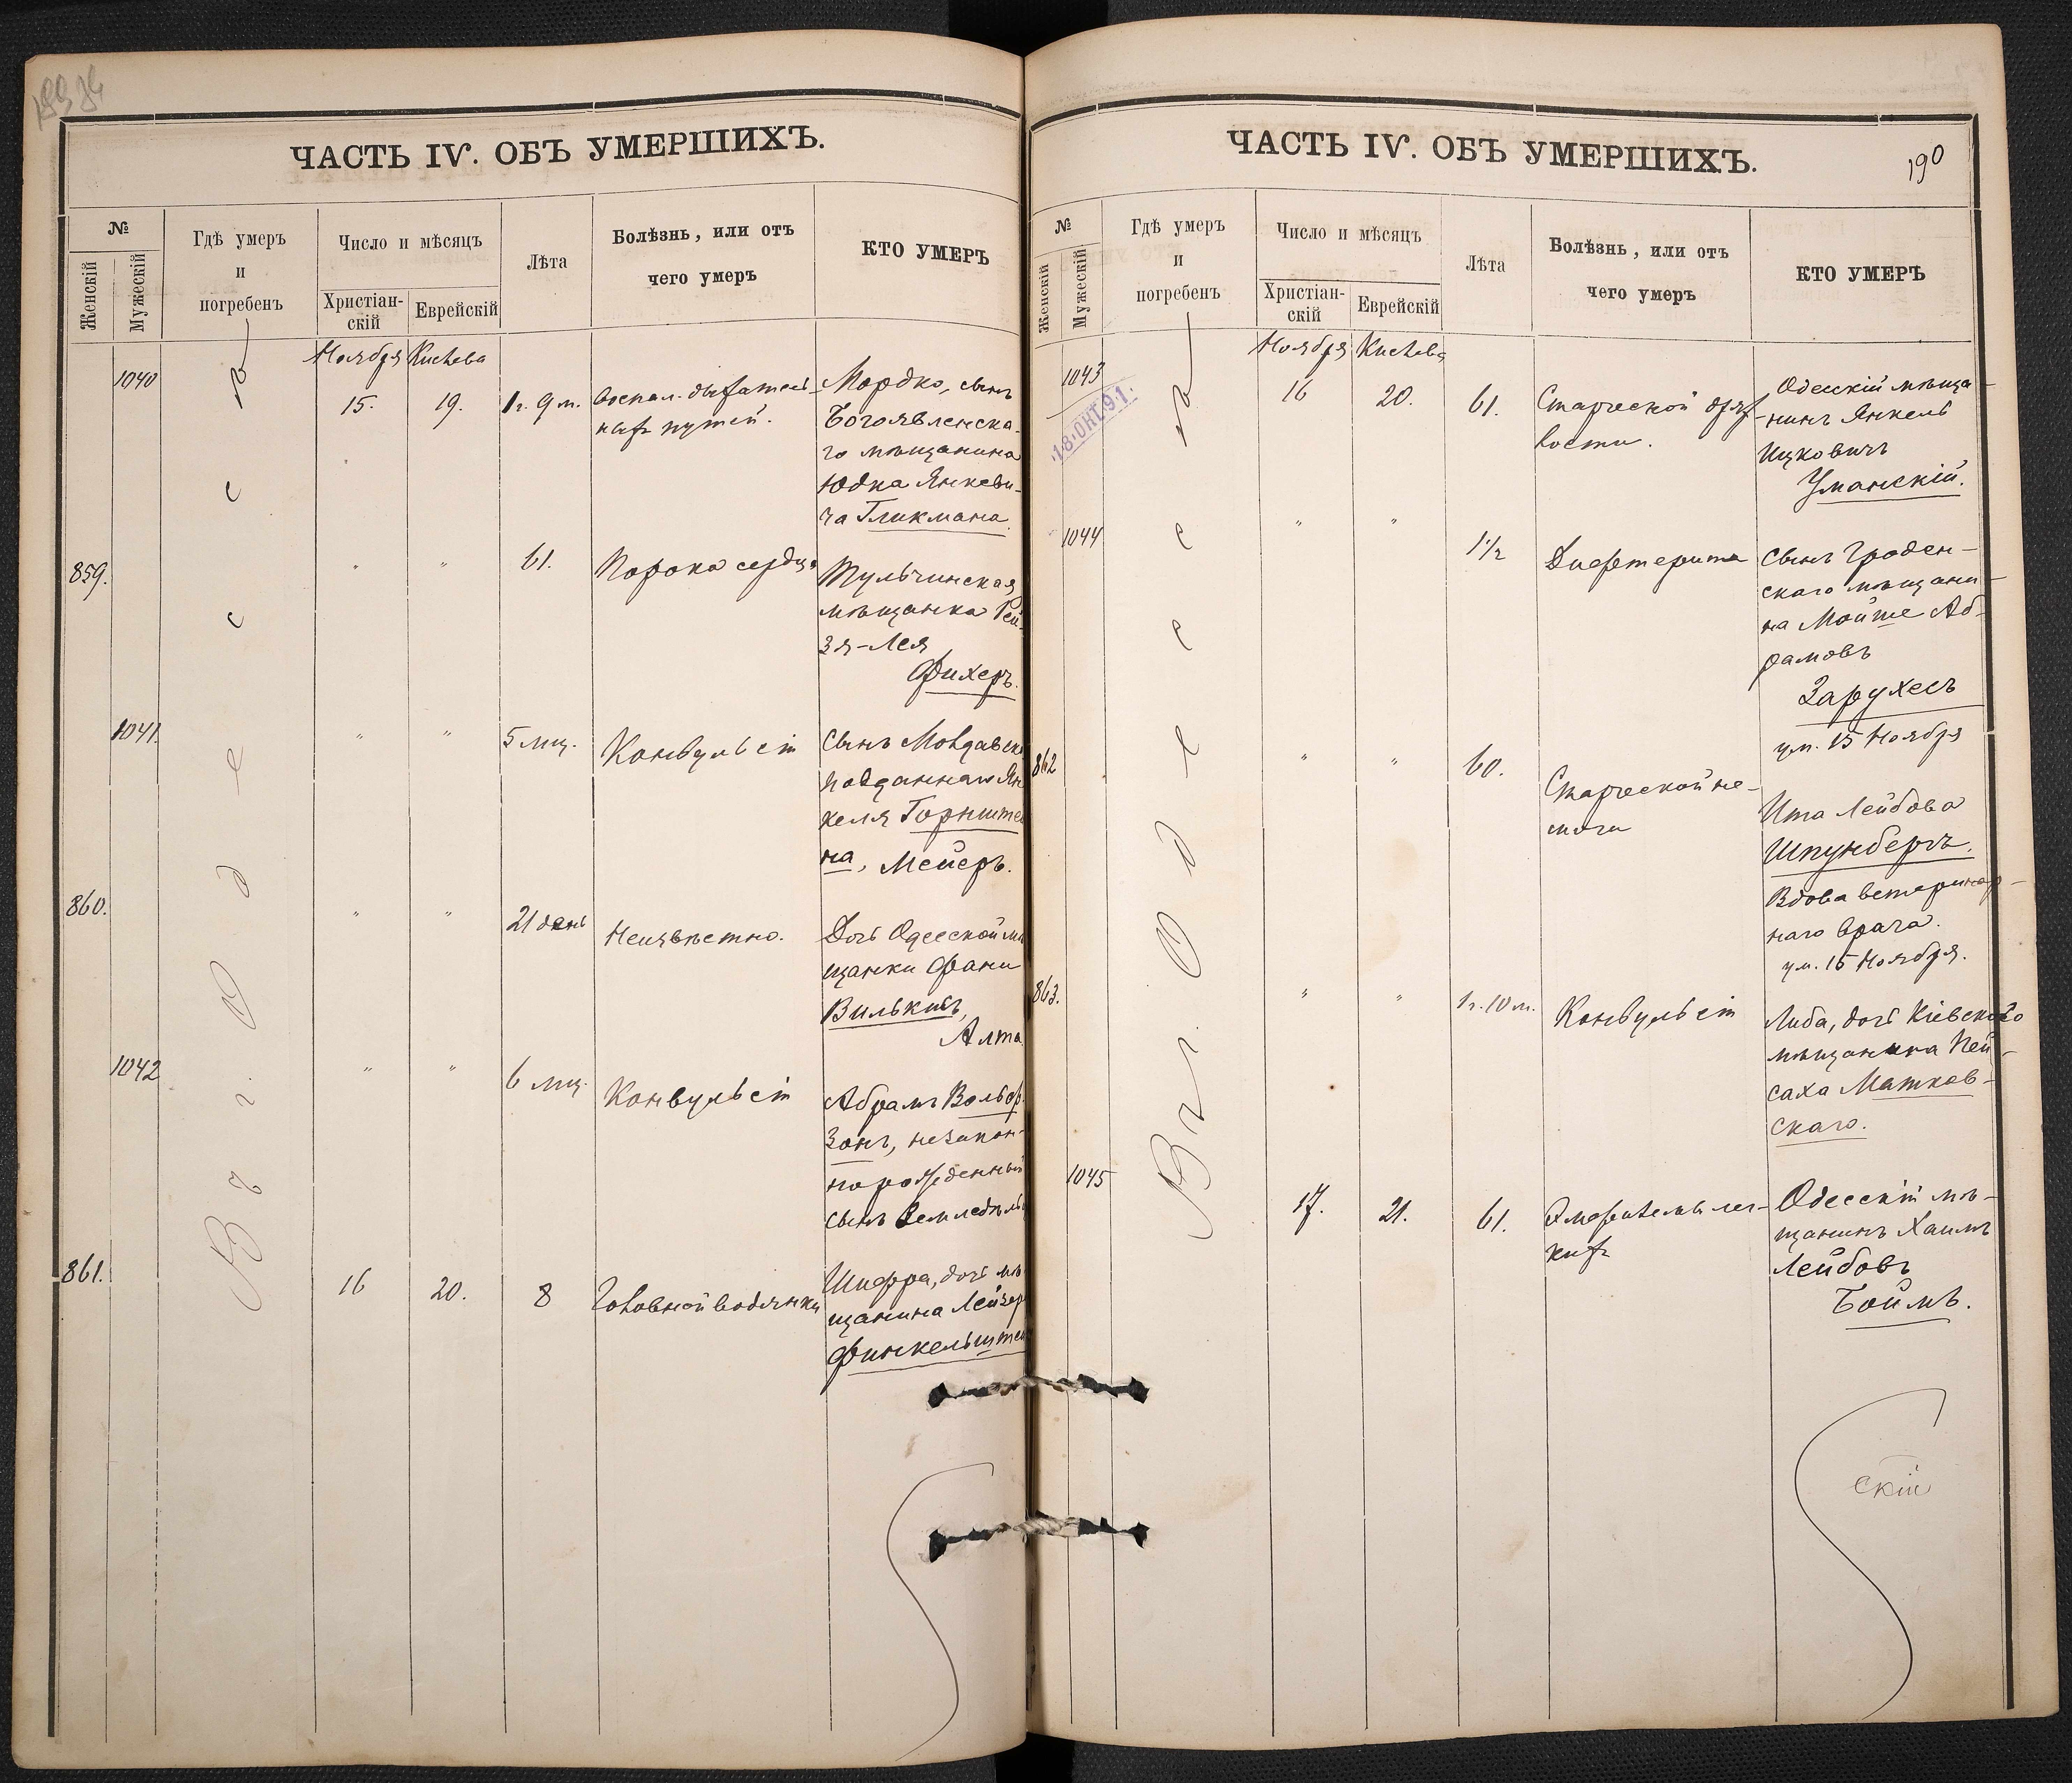 ЧАСТЬ IV. ОБЪ УМЕРШИХЪ.
№
Женскій
Мужескій
Гдѣ умеръ
и
погребенъ
Число и мѣсяцъ
Христіан-
скій
Еврейскій
Лѣта
Болѣзнь, или отъ
чего умеръ
КТО УМЕРЪ
Въ г. Одесса
Ноября Кислева
1040 15. 19. 1 г. 9 м. Воспал. дыхатель-
ныхъ путей.
Мордко, сынъ
Богоявленска-
го мѣщанина
Юдка Янкеви-
ча Гликмана.
859. " " 61. Порока сердца
Тульчинская
мѣщанка Рей-
зя-Лея
Фихеръ.
1041. " " 5 мц. Конвульсіи
Сынъ Молдавск
подданнаго Ян
келя Горнште
на, Мейеръ.
860. " " 21 день Неизвѣстно.
Дочь Одесской мѣ
щанки Фани
Вилькинъ,
Алта.
1042 " " 6 мц. Конвульсіи
Абрамъ Вольф-
зонъ, незакон-
норожденный
сынъ Земледѣль
861. 16 20. 8 Головной водянки
Шифра, дочь мѣ
щанина Лейзер
Финкельштей
ЧАСТЬ IV. ОБЪ УМЕРШИХЪ.
190
№
Женскій
Мужескій
Гдѣ умеръ
и
погребенъ
Число и мѣсяцъ
Христіан-
скій
Еврейскій
Лѣта
Болѣзнь, или отъ
чего умеръ
КТО УМЕРЪ
Въ г. Одесса
Ноября Кислева
1043 16 20. 61. Старческой дрях-
лости.
18.ОКТ.91.
Одесскій мѣща-
нинъ Янкель
Ицковичъ
Уманскій.
1044 " " 1 1/2 Дифтерита
Сынъ Гроден-
скаго мѣщани-
на Мойше Аб-
рамовъ
Зарухесъ
ум. 15 Ноября
862 " " 60. Старческой не-
мочи
Ита Лейбова
Шпунбергъ.
Вдова ветеринар-
наго врача.
ум. 15 Ноября.
863. " " 1 г. 10 м. Конвульсіи
Либа, дочь Кіевскаго
мѣщанина Пей-
саха Матков-
скаго.
1045 17. 21. 61. Омертвенія лег-
кихъ
Одесскій мѣ-
щанинъ Хаимъ
Лейбовъ
Боймъ.
скій